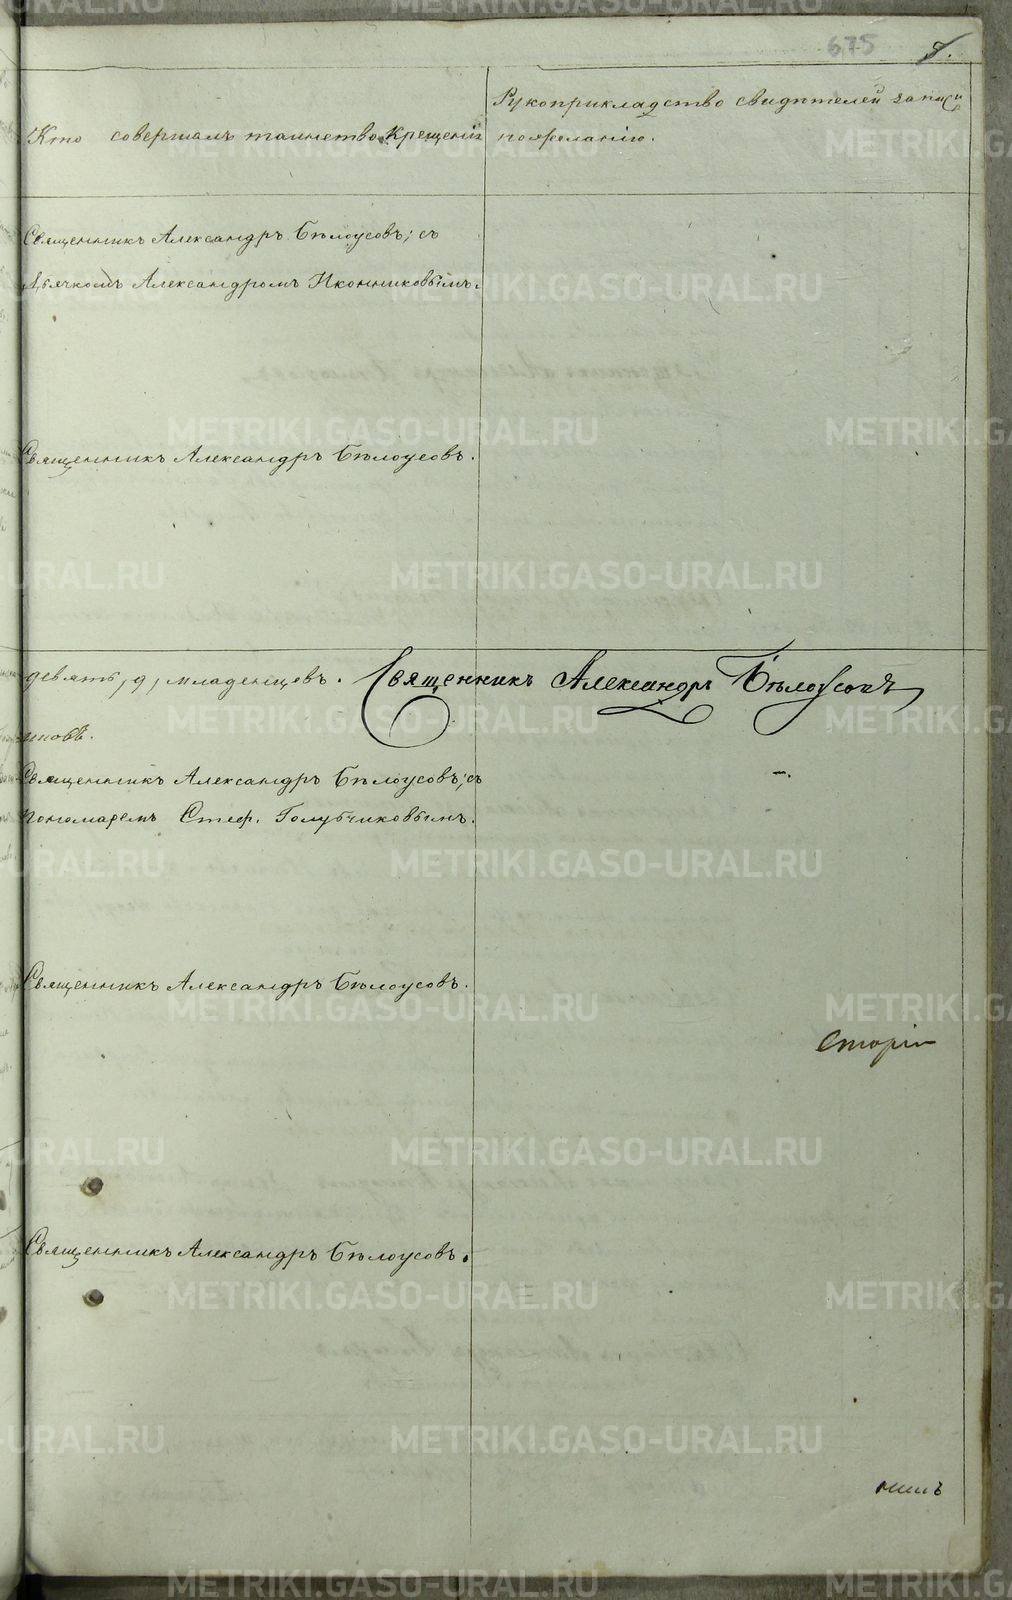 675
Кто совершалъ таинство Крещенія
Рукоприкладство свидѣтелей записи
по желанію.
Священникъ Александръ Бѣлоусовъ; съ
Дьячкомъ Александромъ Иконниковымъ.
Священникъ Александръ Бѣлоусовъ.
девять, 9, младенцевъ. Священникъ Александръ Бѣлоусовъ
Священникъ Александръ Бѣлоусовъ; съ
пономаремъ Стеф. Голубчиковымъ.
Священникъ Александръ Бѣлоусовъ.
Священникъ Александръ Бѣлоусовъ.
METRIKI.GASO-URAL.RU